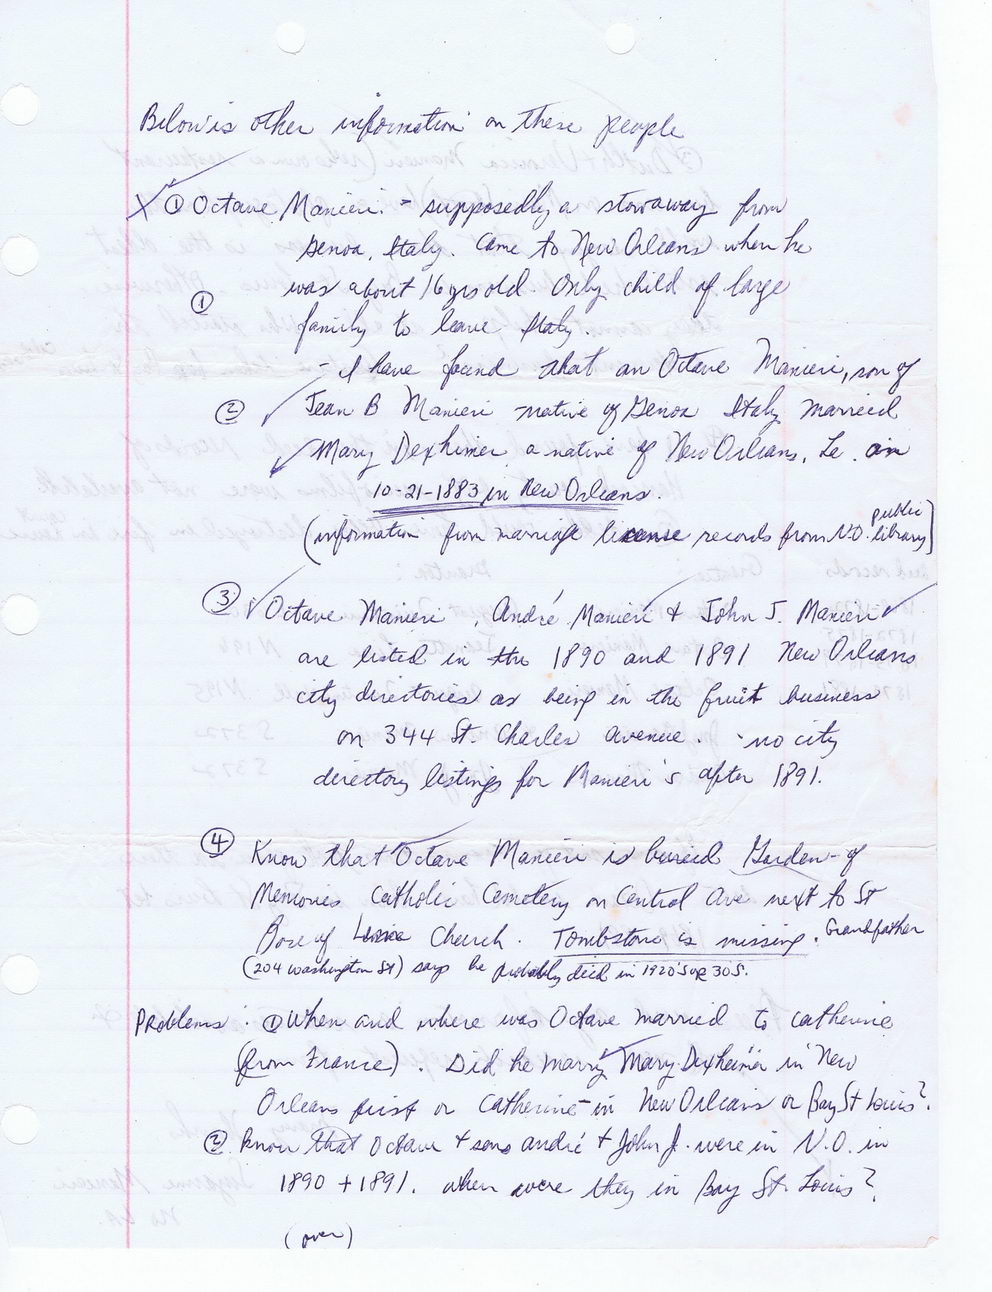 Below is other information on these people
X ① Octave Manieri - supposedly a stowaway from
Genoa, Italy. Came to New Orleans when he
① was about 16 yrs old. Only child of large
family to leave Italy.
- I have found that an Octave Manieri, son of
② Jean B Manieri native of Genoa Italy married
Mary Dexheimer a native of New Orleans, La. on
10-21-1883 in New Orleans.
(information from marriage license records from N.O. public library)
③ Octave Manieri, André Manieri & John J. Manieri
are listed in the 1890 and 1891 New Orleans
city directories as being in the fruit business
on 344 St. Charles avenue - no city
directory listings for Manieri's after 1891.
④ Know that Octave Manieri is buried Garden-of
Memories Catholic Cemetery on Central Ave next to St
Rose of Church. Tombstone is missing. Grandfather
(204 Washington St) says he probably died in 1920's or 30s.
Problems: ① When and where was Octave married to Catherine
(from France). Did he marry Mary Dexheimer in New
Orleans first or Catherine - in New Orleans or Bay St Louis?
② Know that Octave & sons André & John J. were in N.O. in
1890 + 1891. When were they in Bay St. Louis?
(over)